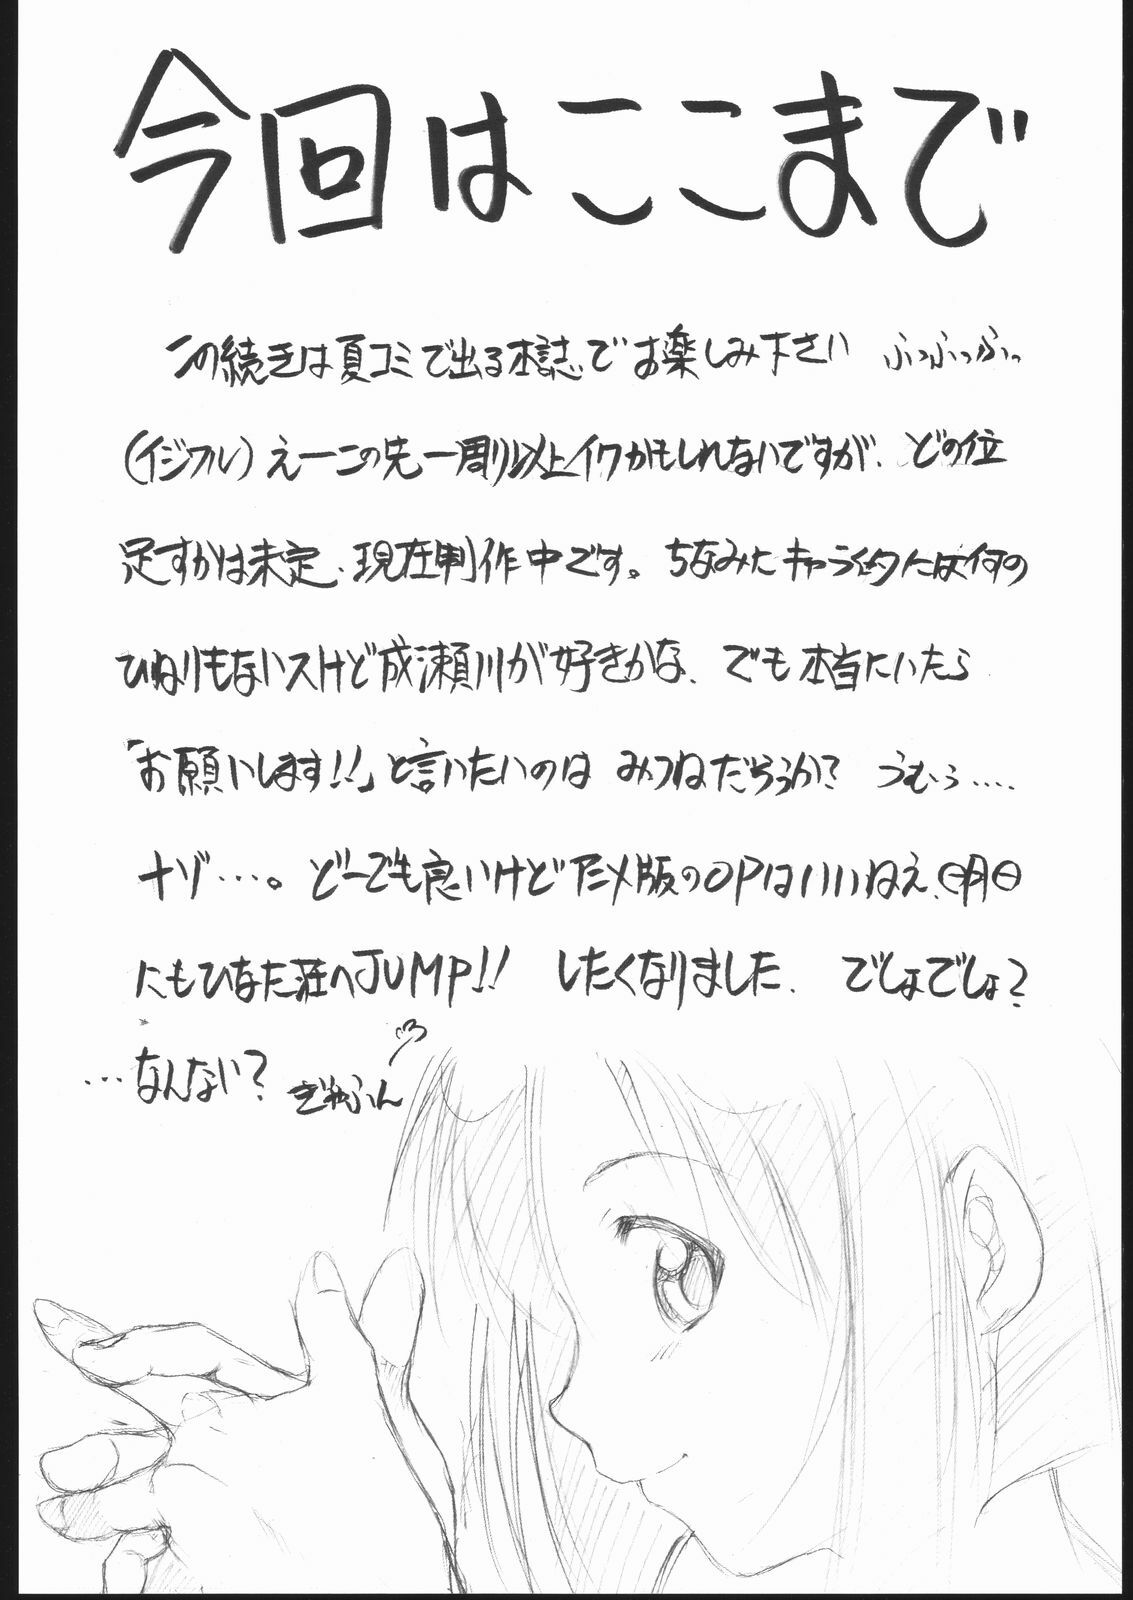 今回はここまで
この続きは夏コミで出る本誌でお楽しみ下さい ふっふっふっ
(イジワル) えーこの先一周り以上イクかもしれないですが、どの位
足すかは未定、現在制作中です。ちなみにキャラ的には何の
ひねりもないスけど成瀬川が好きかな、でも本当にいたら
「お願いします!!」と言いたいのは みつねだろうか? うむぅ....
ナゾ…。どーでも良いけどアニメ版のOPはいいねえ、明日
にもひなた荘へJUMP!! したくなりました、でしょでしょ?
…なんない? ぎゃふん